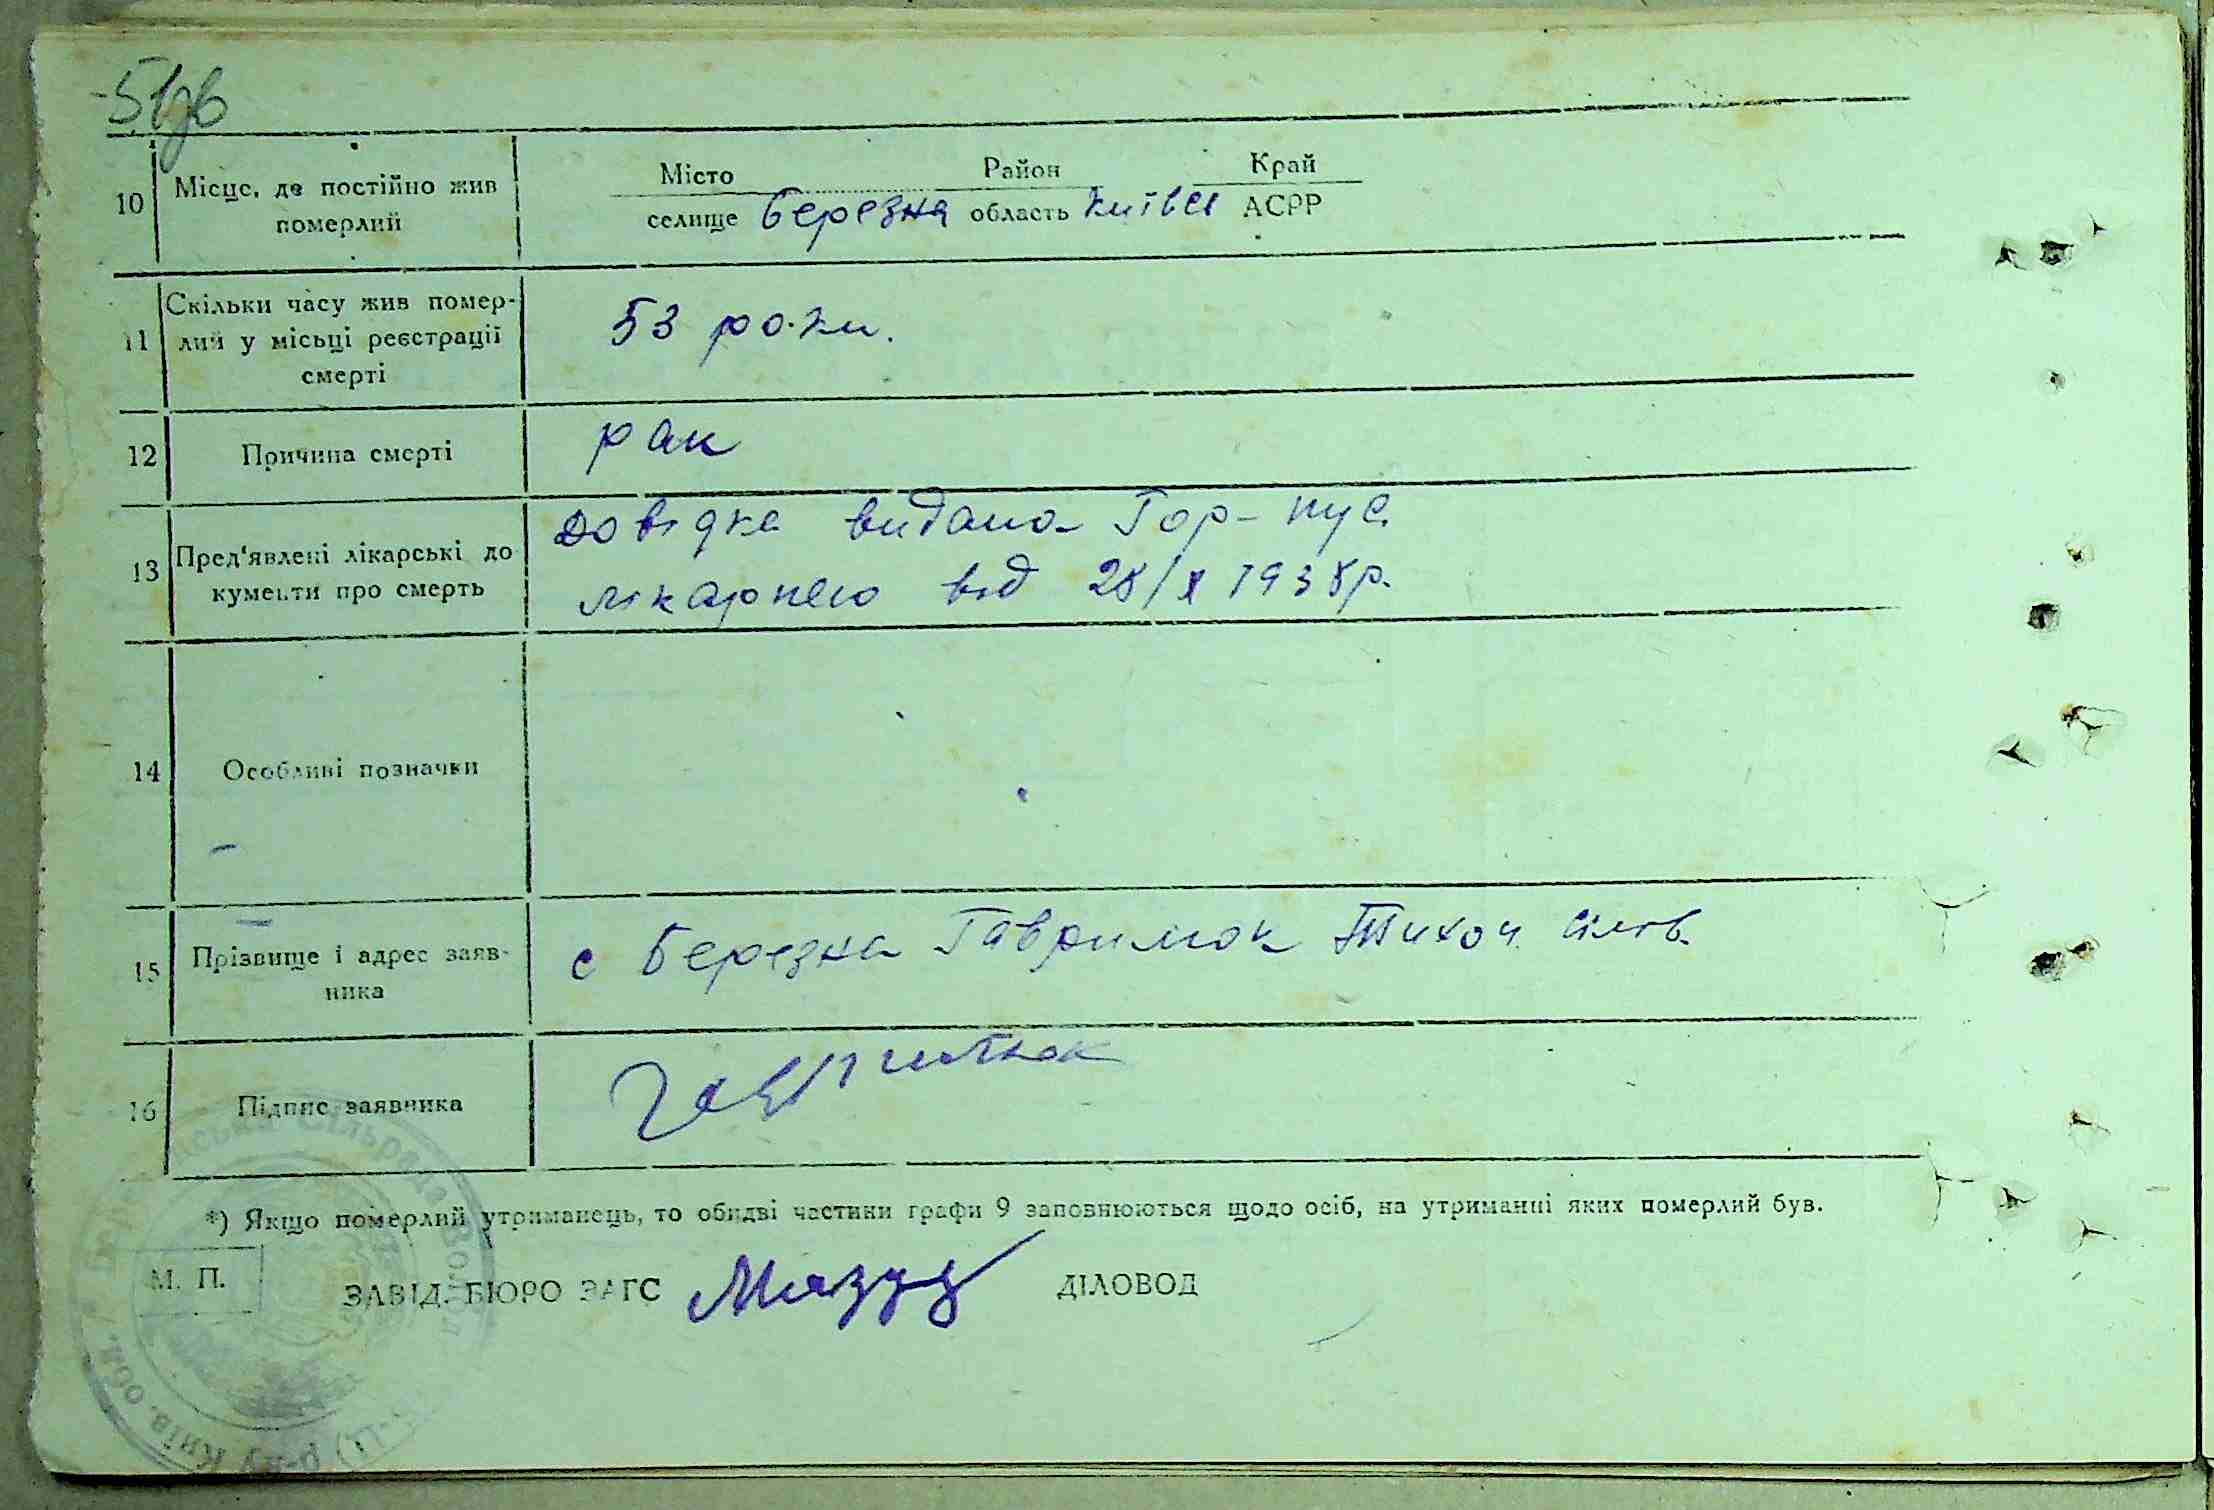 51зв
Місто Район Край
10 Місце, де постійно жив померлий
селище Березна область Київсь АСРР
11 Скільки часу жив помер-
лий у місьці реєстрації
смерті
53 роки.
12 Причина смерті рак
13 Пред'явлені лікарські до
кументи про смерть
Довідка видана Гор-пус.
лікарнею від 28/X 1938р.
14 Особливі позначки
15 Прізвище і адрес заяв-
ника
с Березна Гаврилюк Тихон
16 Підпис заявника Гаврилюк
*) Якщо померлий утриманець, то обидві частини графи 9 заповнюються щодо осіб, на утриманні яких померлий був.
М. П.
ЗАВІД. БЮРО ЗАГС Мазур ДІЛОВОД
Сільрада Волод
р-ну Київ. обл.